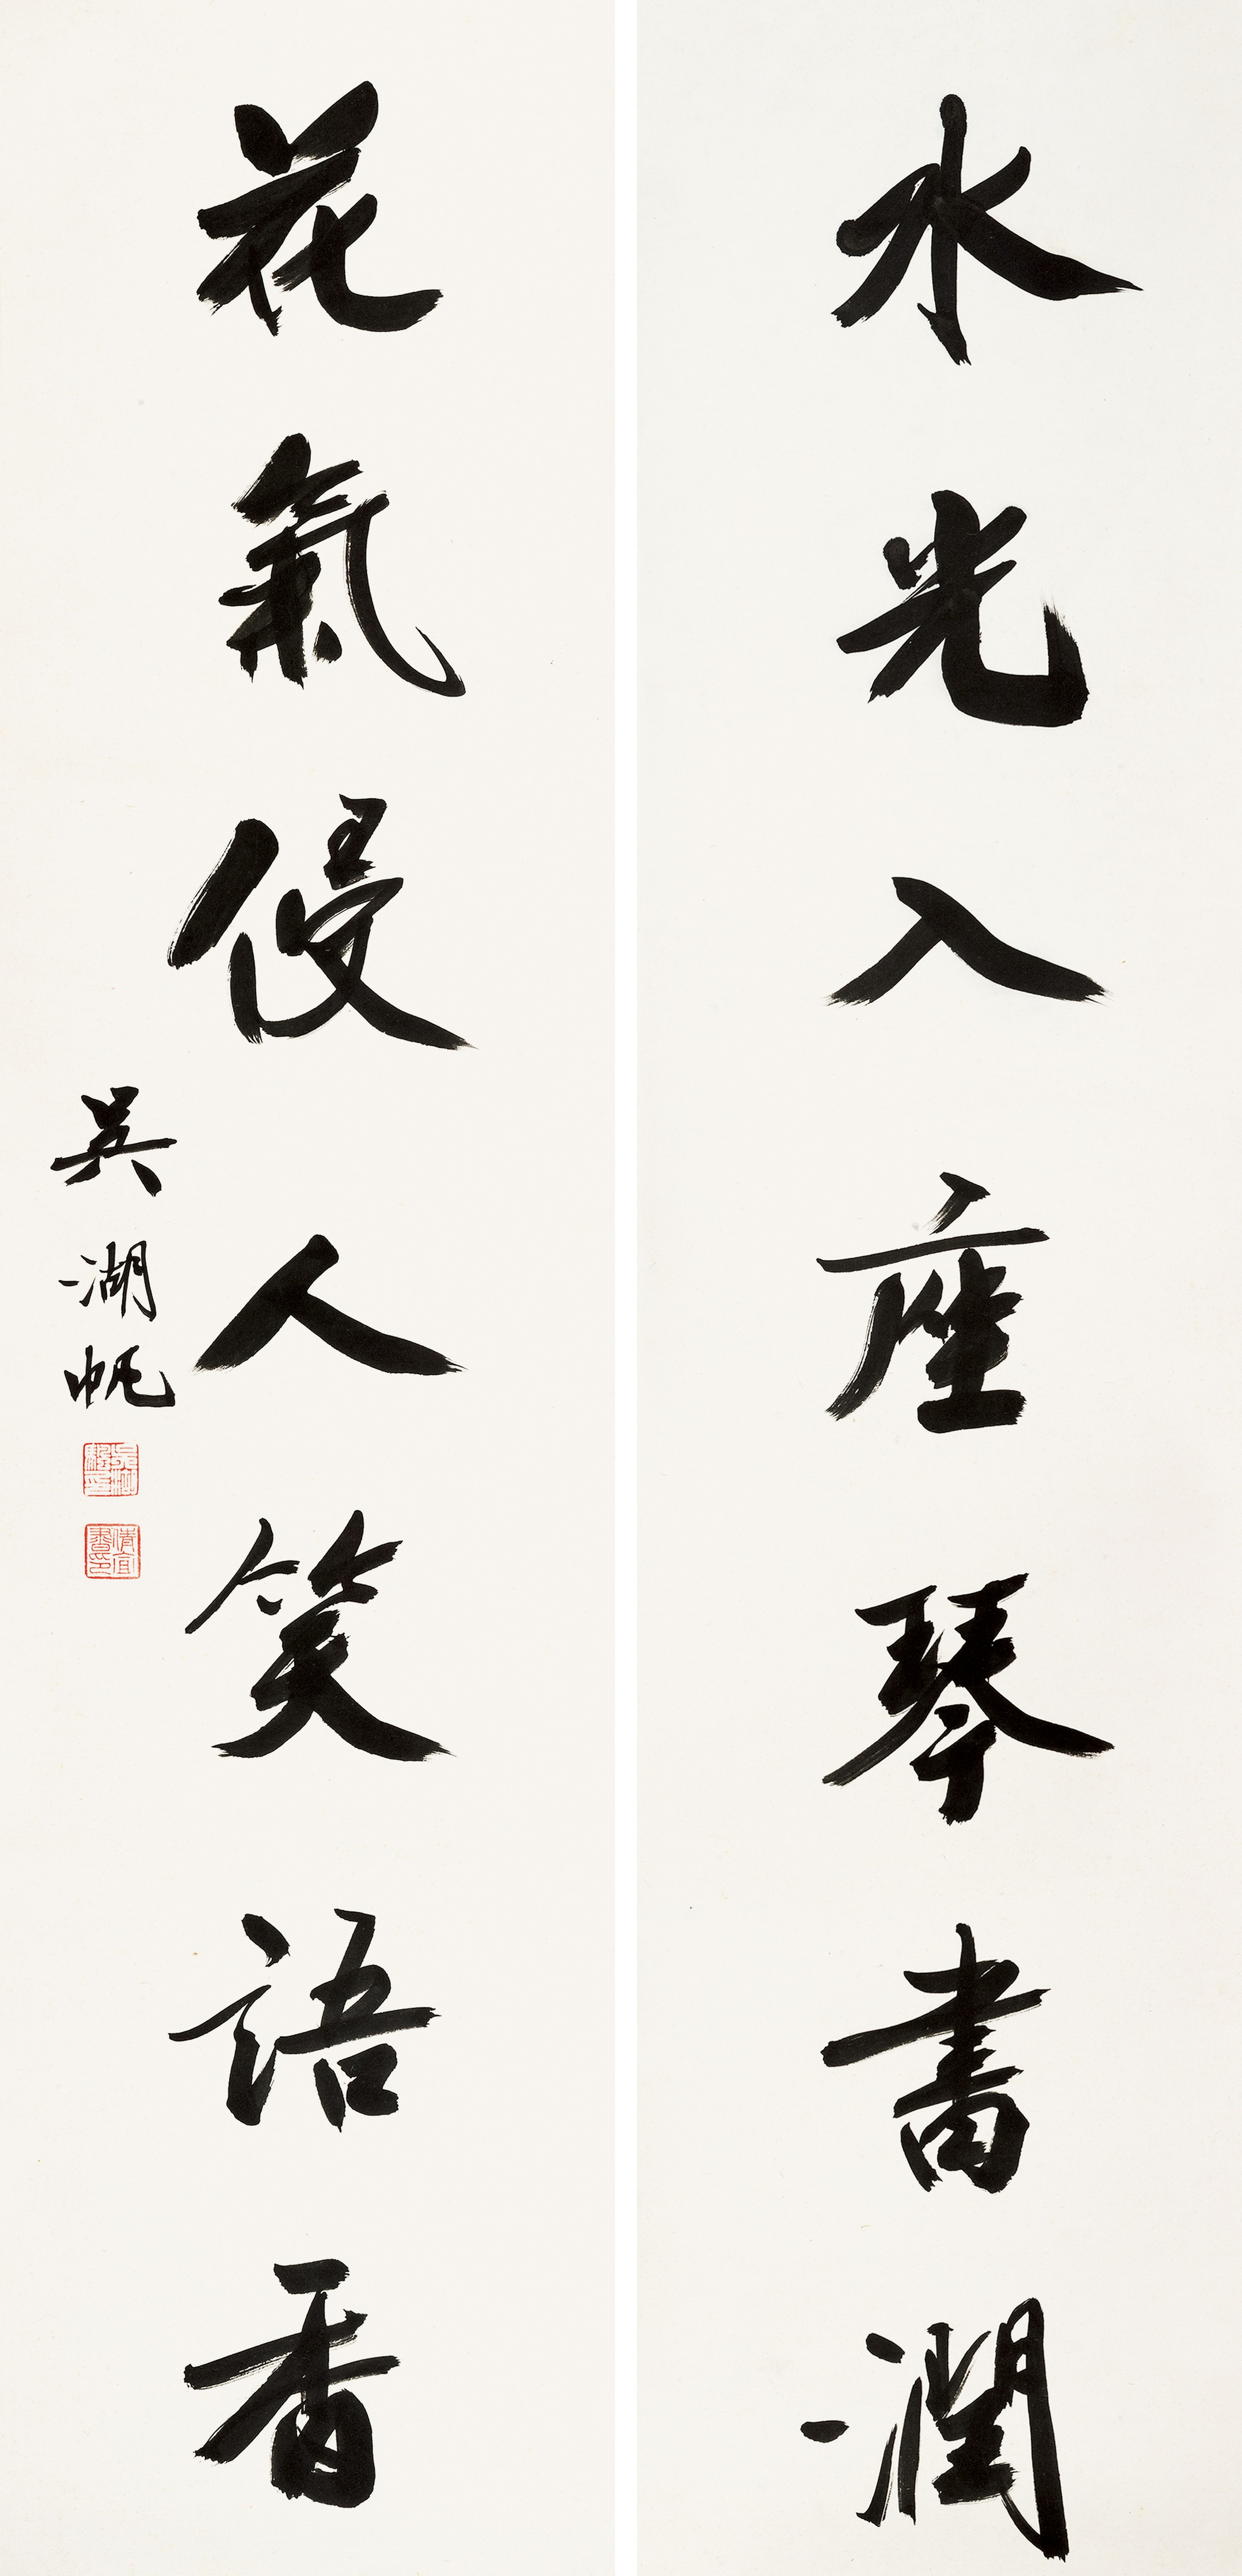 水光入座琴書潤
花氣侵人笑語香
吳湖帆
倩宜書印